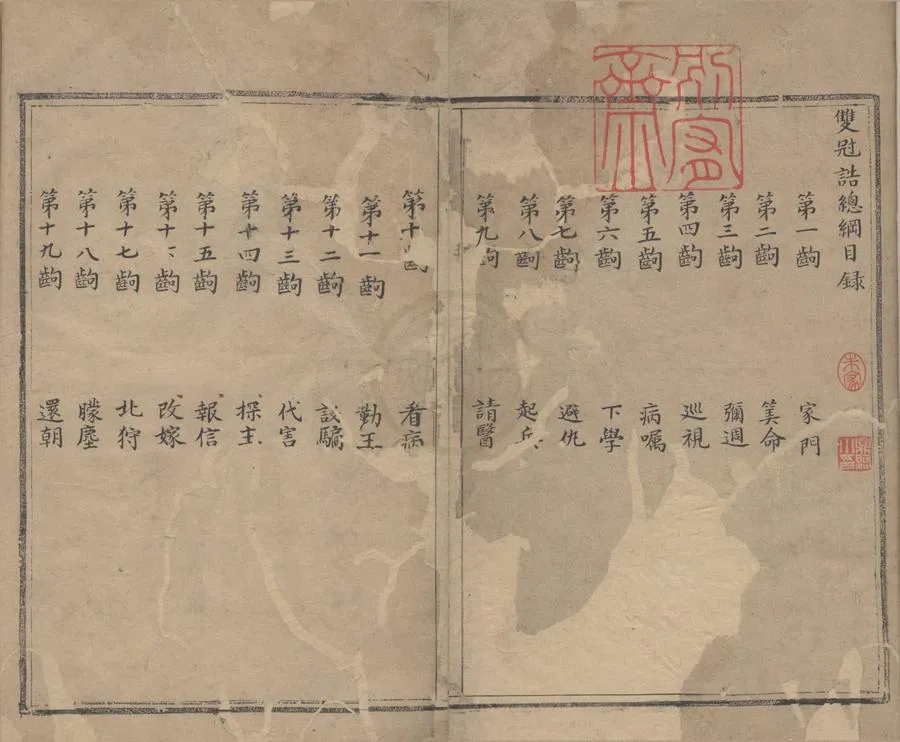 雙冠誥總綱目錄
第一齣 家門
第二齣 筭命
第三齣 彌週
第四齣 巡視
第五齣 病囑
第六齣 下學
第七齣 避仇
第八齣 起兵
第九齣 請醫
第十齣 看病
第十一齣 勤王
第十二齣 設騙
第十三齣 代害
第十四齣 探主
第十五齣 報信
第十六齣 改嫁
第十七齣 北狩
第十八齣 矇塵
第十九齣 還朝